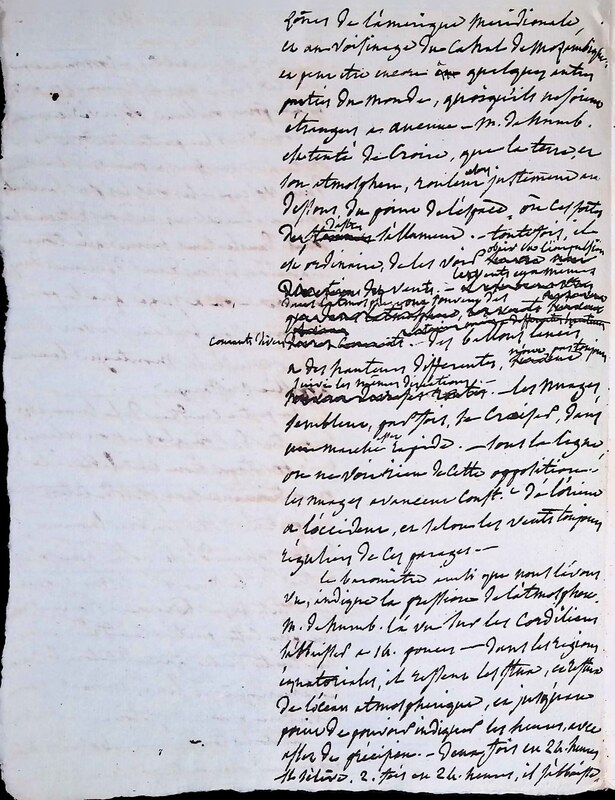 zônes de l'amérique méridionale,
et au voisinage du Canal de Mozambique,
et peut être encore quelques autres
parties du monde, quoiqu'ils ne soient
étrangers à aucune — M. de Humb.
est tenté de croire, que la terre, et
son atmosphere, roulent alors justement au
dessous, du point de l'espace, où ces sortes
d'astres s'allument. — toutefois, il
est ordinaire, de les voir obéir à l'impulsion
des vents. —
dans l'atmosphere souvent des
courants divers — des ballons lancés
à des hauteurs differentes, n'ont pas toujours
suivi les mêmes directions. — les nuages,
semblent, par fois, se croiser, dans
une marche assez rapide — sous la ligne
on ne voit rien de cette opposition. —
les nuages avancent const.t de l'orient
à l'occident, et selon les vents toujours
réguliers de ces parages —
le baromètre ainsi que nous l'avons
vu, indique la pression de l'atmosphere.
M. de Humb. l'a vu sur les Cordilieres
s'abaisser à 14. pouces — dans les régions
équatoriales, il ressent le flux, et reflux
de l'océan atmospherique, et jusques au
point de pouvoir indiquer les heures, avec
assez de précision. — deux fois en 24. heures
il s'élève. 2. fois en 24. heures, il s'abaisse,